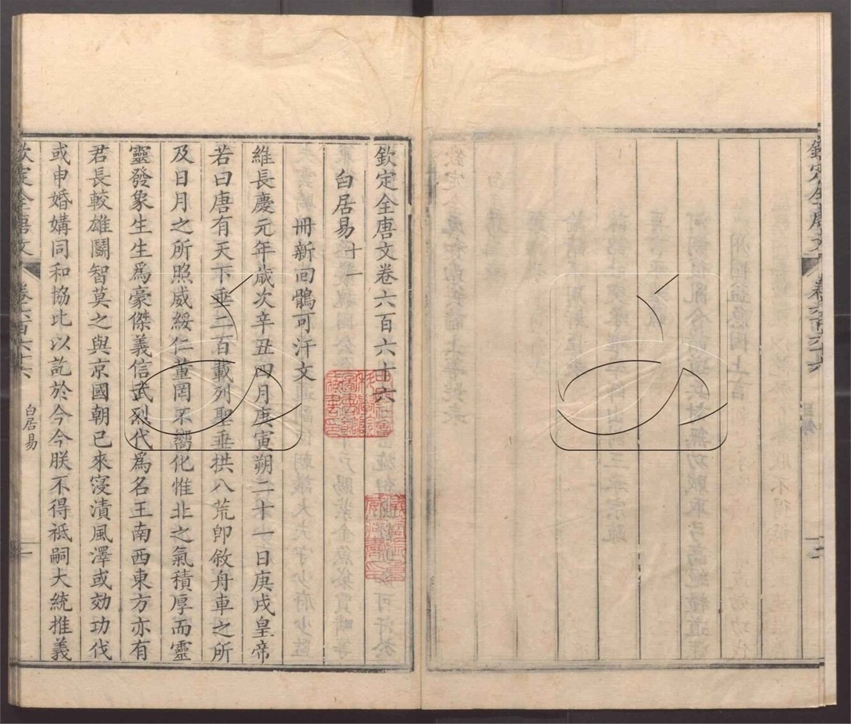 欽定全唐文卷六百六十六
白居易十一
冊新回鶻可汗文
維長慶元年歲次辛丑四月庚寅朔二十一日庚戌皇帝
若曰唐有天下垂二百載列聖垂拱八荒即敘舟車之所
及日月之所照威綏仁董罔不嚮化惟北之氣積厚而靈
靈發象生生爲豪傑義信武烈代爲名王南西東方亦有
君長較雄鬬智莫之與京國朝已來寖漬風澤或効功伐
或申婚媾同和協比以訖於今今朕不得祗嗣大統推義
欽定全唐文
卷六百六十六
白居易
一